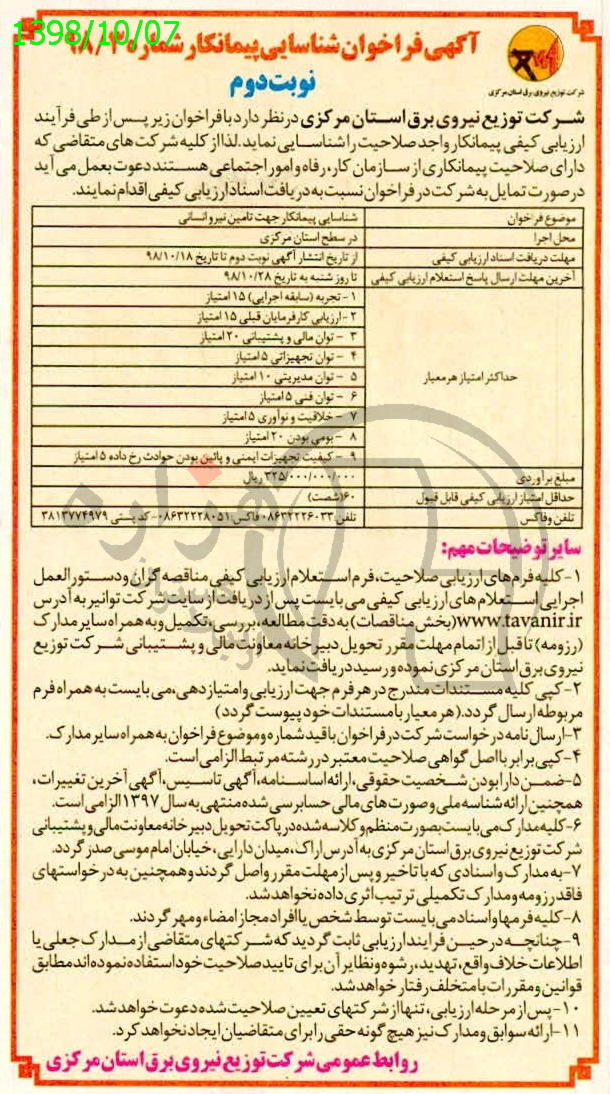 1398/10/07
آگهی فراخوان شناسایی پیمانکار شماره ۹۸/۱۳۰
نوبت دوم
شرکت توزیع نیروی برق استان مرکزی
شرکت توزیع نیروی برق استان مرکزی در نظر دارد با فراخوان زیر پس از طی فرآیند
ارزیابی کیفی پیمانکار واجد صلاحیت را شناسایی نماید. لذا از کلیه شرکت های متقاضی که
دارای صلاحیت پیمانکاری از سازمان کار، رفاه و امور اجتماعی هستند دعوت بعمل می آید
در صورت تمایل به شرکت در فراخوان نسبت به دریافت اسناد ارزیابی کیفی اقدام نمایند.
موضوع فراخوان شناسایی پیمانکار جهت تامین نیرو انسانی
محل اجرا در سطح استان مرکزی
مهلت دریافت اسناد ارزیابی کیفی از تاریخ انتشار آگهی نوبت دوم تا تاریخ ۹۸/۱۰/۱۸
آخرین مهلت ارسال پاسخ استعلام ارزیابی کیفی تا روز شنبه به تاریخ ۹۸/۱۰/۲۸
حداکثر امتیاز هر معیار
۱- تجربه (سابقه اجرایی) ۱۵ امتیاز
۲- ارزیابی کارفرمایان قبلی ۱۵ امتیاز
۳ - توان مالی و پشتیبانی ۲۰ امتیاز
۴ - توان تجهیزاتی ۵ امتیاز
۵ - توان مدیریتی ۱۰ امتیاز
۶ - توان فنی ۵ امتیاز
۷ - خلاقیت و نوآوری ۵ امتیاز
۸ - بومی بودن ۲۰ امتیاز
۹ - کیفیت تجهیزات ایمنی و پائین بودن حوادث رخ داده ۵ امتیاز
مبلغ برآوردی ۳۲۵/۰۰۰/۰۰۰/۰۰۰ ریال
حداقل امتیاز ارزیابی کیفی قابل قبول ۶۰(شصت)
تلفن و فاکس تلفن: ۰۸۶۳۲۲۲۶۰۳۳ فاکس: ۰۸۶۳۲۲۲۸۰۵۱- کد پستی ۳۸۱۳۷۷۴۹۷۹
سایر توضیحات مهم:
۱- کلیه فرم های ارزیابی صلاحیت، فرم استعلام ارزیابی کیفی مناقصه گران و دستور العمل
اجرایی استعلام های ارزیابی کیفی می بایست پس از دریافت از سایت شرکت توانیر به آدرس
www.tavanir.ir (بخش مناقصات) به دقت مطالعه، بررسی، تکمیل و به همراه سایر مدارک
(رزومه) تا قبل از اتمام مهلت مقرر تحویل دبیرخانه معاونت مالی و پشتیبانی شرکت توزیع
نیروی برق استان مرکزی نموده و رسید دریافت نماید.
۲- کپی کلیه مستندات مندرج در هر فرم جهت ارزیابی و امتیازدهی، می بایست به همراه فرم
مربوطه ارسال گردد. (هر معیار با مستندات خود پیوست گردد)
۳- ارسال نامه درخواست شرکت در فراخوان با قید شماره و موضوع فراخوان به همراه سایر مدارک.
۴- کپی برابر با اصل گواهی صلاحیت معتبر در رشته مرتبط الزامی است.
۵- ضمن دارا بودن شخصیت حقوقی، ارائه اساسنامه، آگهی تاسیس، آگهی آخرین تغییرات،
همچنین ارائه شناسه ملی و صورت های مالی حسابرسی شده منتهی به سال ۱۳۹۷ الزامی است.
۶- کلیه مدارک می بایست بصورت منظم و کلاسه شده در پاکت تحویل دبیرخانه معاونت مالی و پشتیبانی
شرکت توزیع نیروی برق استان مرکزی به آدرس اراک، میدان دارایی، خیابان امام موسی صدر گردد.
۷- به مدارک و اسنادی که با تاخیر و پس از مهلت مقرر واصل گردند و همچنین به درخواستهای
فاقد رزومه و مدارک تکمیلی ترتیب اثری داده نخواهد شد.
۸- کلیه فرمها و اسناد می بایست توسط شخص یا افراد مجاز امضاء و مهر گردند.
۹- چنانچه در حین فرایند ارزیابی ثابت گردید که شرکتهای متقاضی از مدارک جعلی یا
اطلاعات خلاف واقع، تهدید، رشوه و نظایر آن برای تایید صلاحیت خود استفاده نموده اند مطابق
قوانین و مقررات با متخلف رفتار خواهد شد.
۱۰- پس از مرحله ارزیابی، تنها از شرکتهای تعیین صلاحیت شده دعوت خواهد شد.
۱۱- ارائه سوابق و مدارک نیز هیچ گونه حقی را برای متقاضیان ایجاد نخواهد کرد.
روابط عمومی شرکت توزیع نیروی برق استان مرکزی